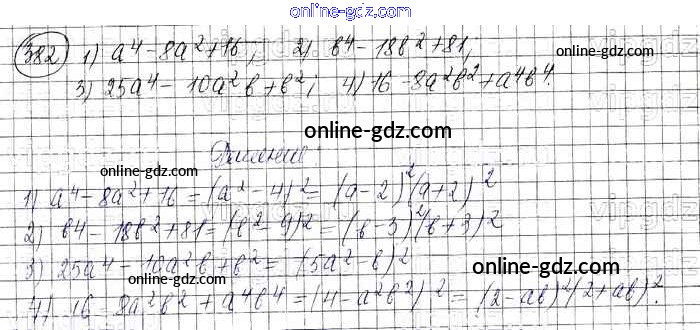 online-gdz.com
382) 1) a⁴ - 8a² + 16; 2) b⁴ - 18b² + 81;
online-gdz.com
3) 25a⁴ - 10a²b + b²; 4) 16 - 8a²b² + a⁴b⁴.
online-gdz.com
Решение:
online-gdz.com
1) a⁴ - 8a² + 16 = (a² - 4)² = (a - 2)²(a + 2)²
2) b⁴ - 18b² + 81 = (b² - 9)² = (b - 3)²(b + 3)²
3) 25a⁴ - 10a²b + b² = (5a² - b)²
online-gdz.com
online-gdz.com
4) 16 - 8a²b² + a⁴b⁴ = (4 - a²b²)² = (2 - ab)²(2 + ab)².
online-gdz.com